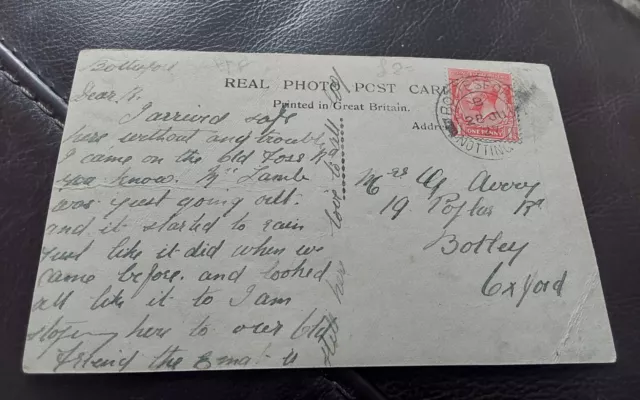 Bottesford
Dear A.
I arrived safe
here without and trouble
I came on the old Foss W
you know. Mrs Lamb
was just going out.
and it started to rain
just like it did when we
came before. and looked
all like it to I am
here to over old
friend the
here love to all
REAL PHOTO POST CAR
Printed in Great Britain.
Addre
ONE PENNY
NOTTING
Mrs G Avery
19. Poplar Rd
Botley
Oxford